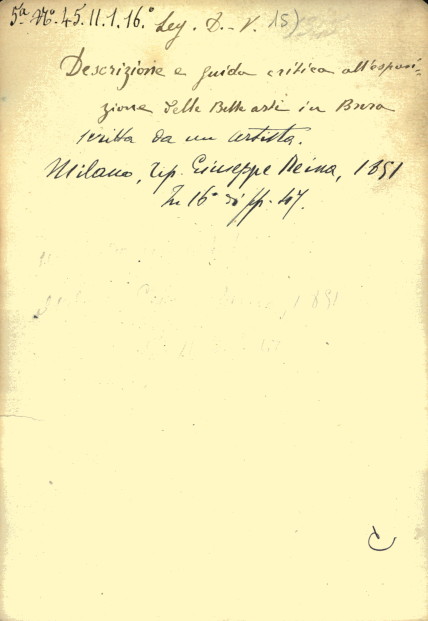 5ª Nº 45. II. 1. 16.° Leg. D. V. 15)
Descrizione e guida critica all'esposi-
zione delle Belle arti in Brera
scritta da un artista.
Milano, tip. Giuseppe Reina, 1851
In 16° di pp. 47.
1851